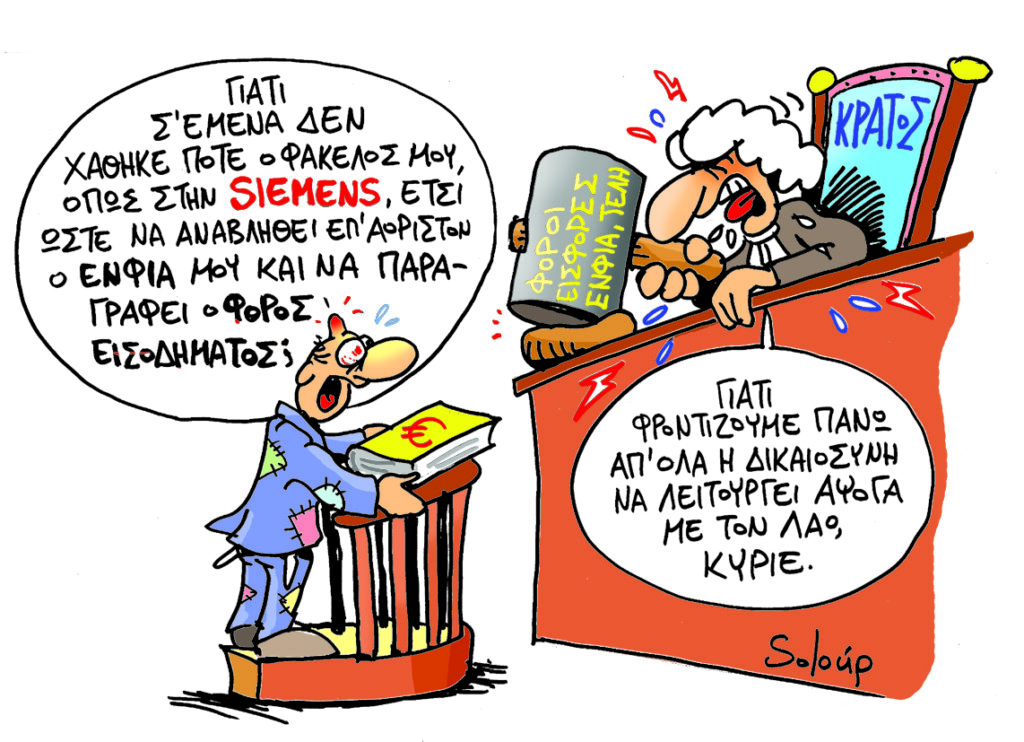 ΓΙΑΤΙ
Σ'ΕΜΕΝΑ ΔΕΝ
ΧΑΘΗΚΕ ΠΟΤΕ Ο ΦΑΚΕΛΟΣ ΜΟΥ,
ΟΠΩΣ ΣΤΗΝ SIEMENS, ΕΤΣΙ
ΩΣΤΕ ΝΑ ΑΝΑΒΛΗΘΕΙ ΕΠ'ΑΟΡΙΣΤΟΝ
Ο ΕΝΦΙΑ ΜΟΥ ΚΑΙ ΝΑ ΠΑΡΑ-
ΓΡΑΦΕΙ Ο ΦΟΡΟΣ
ΕΙΣΟΔΗΜΑΤΟΣ;
€
ΦΟΡΟΙ
ΕΙΣΦΟΡΕΣ
ΕΝΦΙΑ, ΤΕΛΗ
ΚΡΑΤΟΣ
ΓΙΑΤΙ
ΦΡΟΝΤΙΖΟΥΜΕ ΠΑΝΩ
ΑΠ'ΟΛΑ Η ΔΙΚΑΙΟΣΥΝΗ
ΝΑ ΛΕΙΤΟΥΡΓΕΙ ΑΨΟΓΑ
ΜΕ ΤΟΝ ΛΑΟ,
ΚΥΡΙΕ.
Soloúp